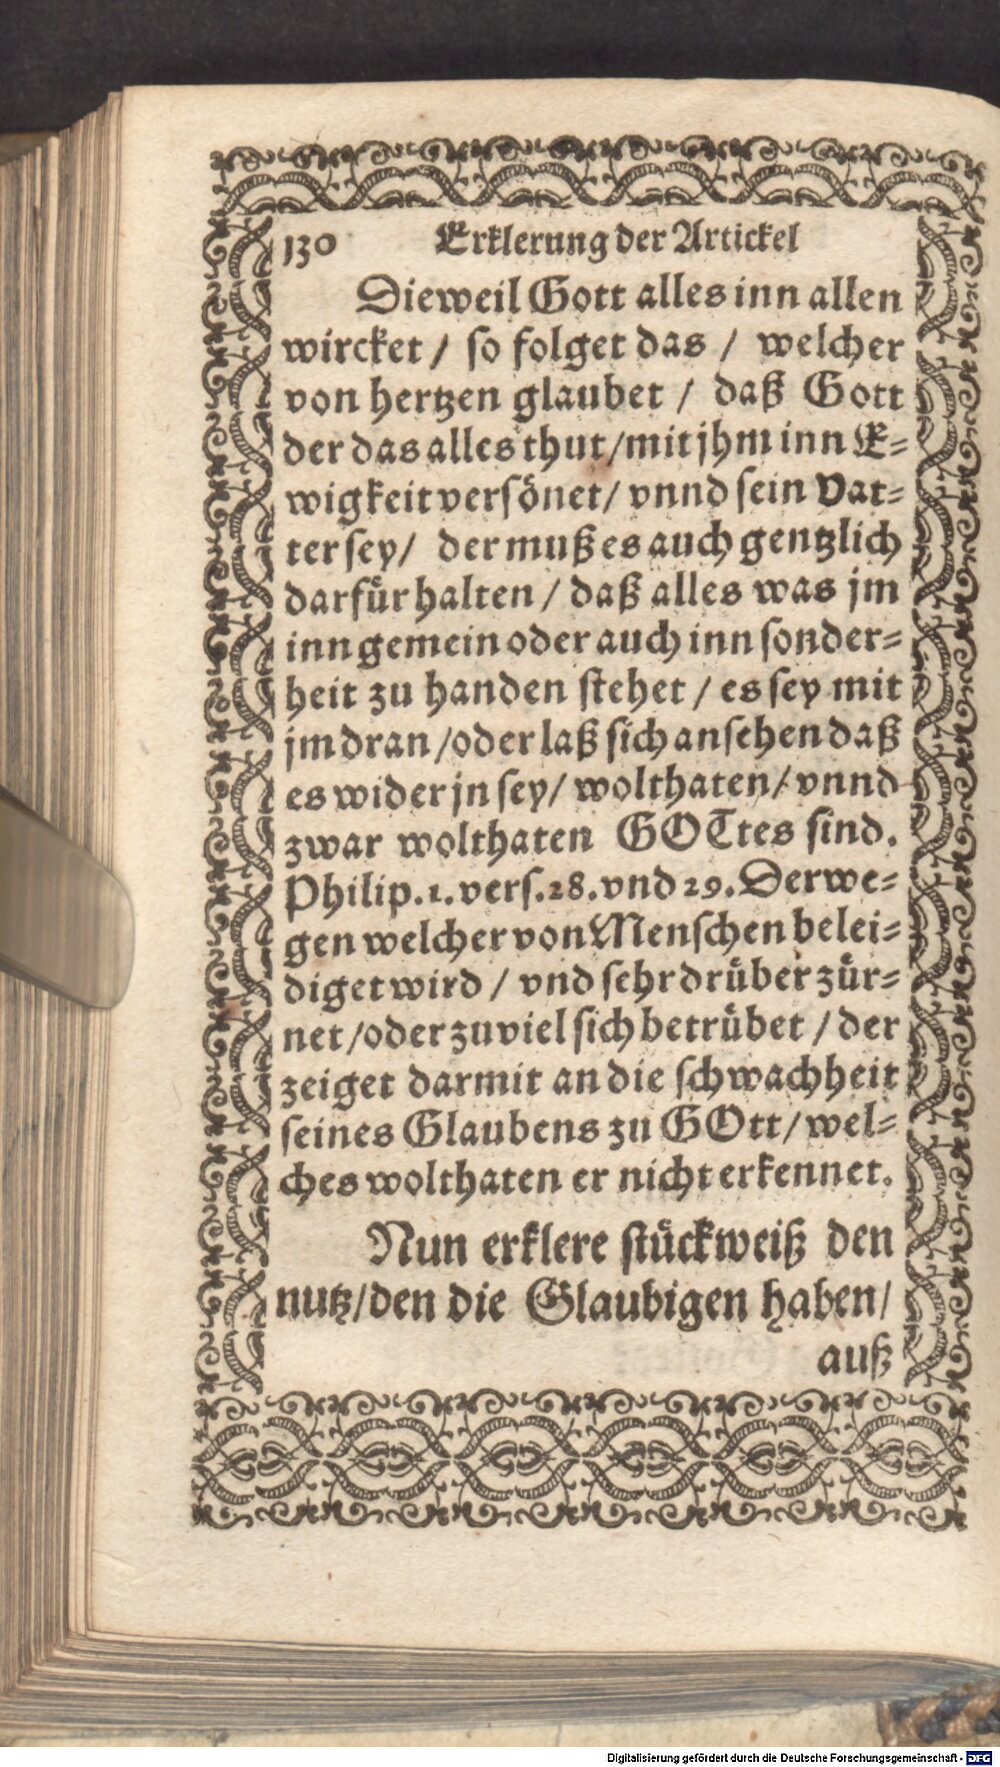 130 Erklerung der Artickel
Dieweil Gott alles inn allen
wircket / so folget das / welcher
von hertzen glaubet / daß Gott
der das alles thut / mit jhm inn E-
wigkeit versönet / vnnd sein Vat-
ter sey / der muß es auch gentzlich
darfür halten / daß alles was jm
inn gemein oder auch inn sonder-
heit zu handen stehet / es sey mit
jm dran / oder laß sich ansehen daß
es wider jn sey / wolthaten / vnnd
zwar wolthaten GOTtes sind.
Philip. 1. vers. 28. vnd 29. Derwe-
gen welcher von Menschen belei-
diget wird / vnd sehr drüber zür-
net / oder zuviel sich betrübet / der
zeiget darmit an die schwachheit
seines Glaubens zu GOtt / wel-
ches wolthaten er nicht erkennet.
Nun erklere stückweiß den
nutz / den die Glaubigen haben /
auß
Digitalisierung gefördert durch die Deutsche Forschungsgemeinschaft - DFG